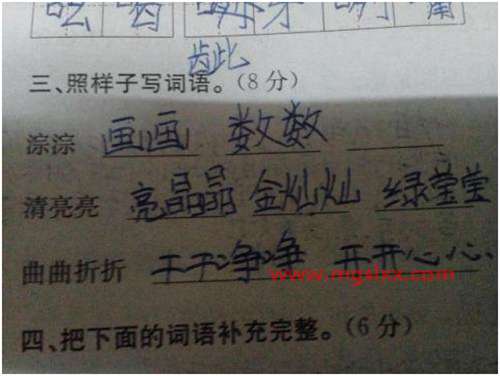 齿此
三、照样子写词语。(8分)
淙淙 画画 数数
清亮亮 亮晶晶 金灿灿 绿莹莹
曲曲折折 干干净净 开开心心
www.mgslxx.com
四、把下面的词语补充完整。(6分)